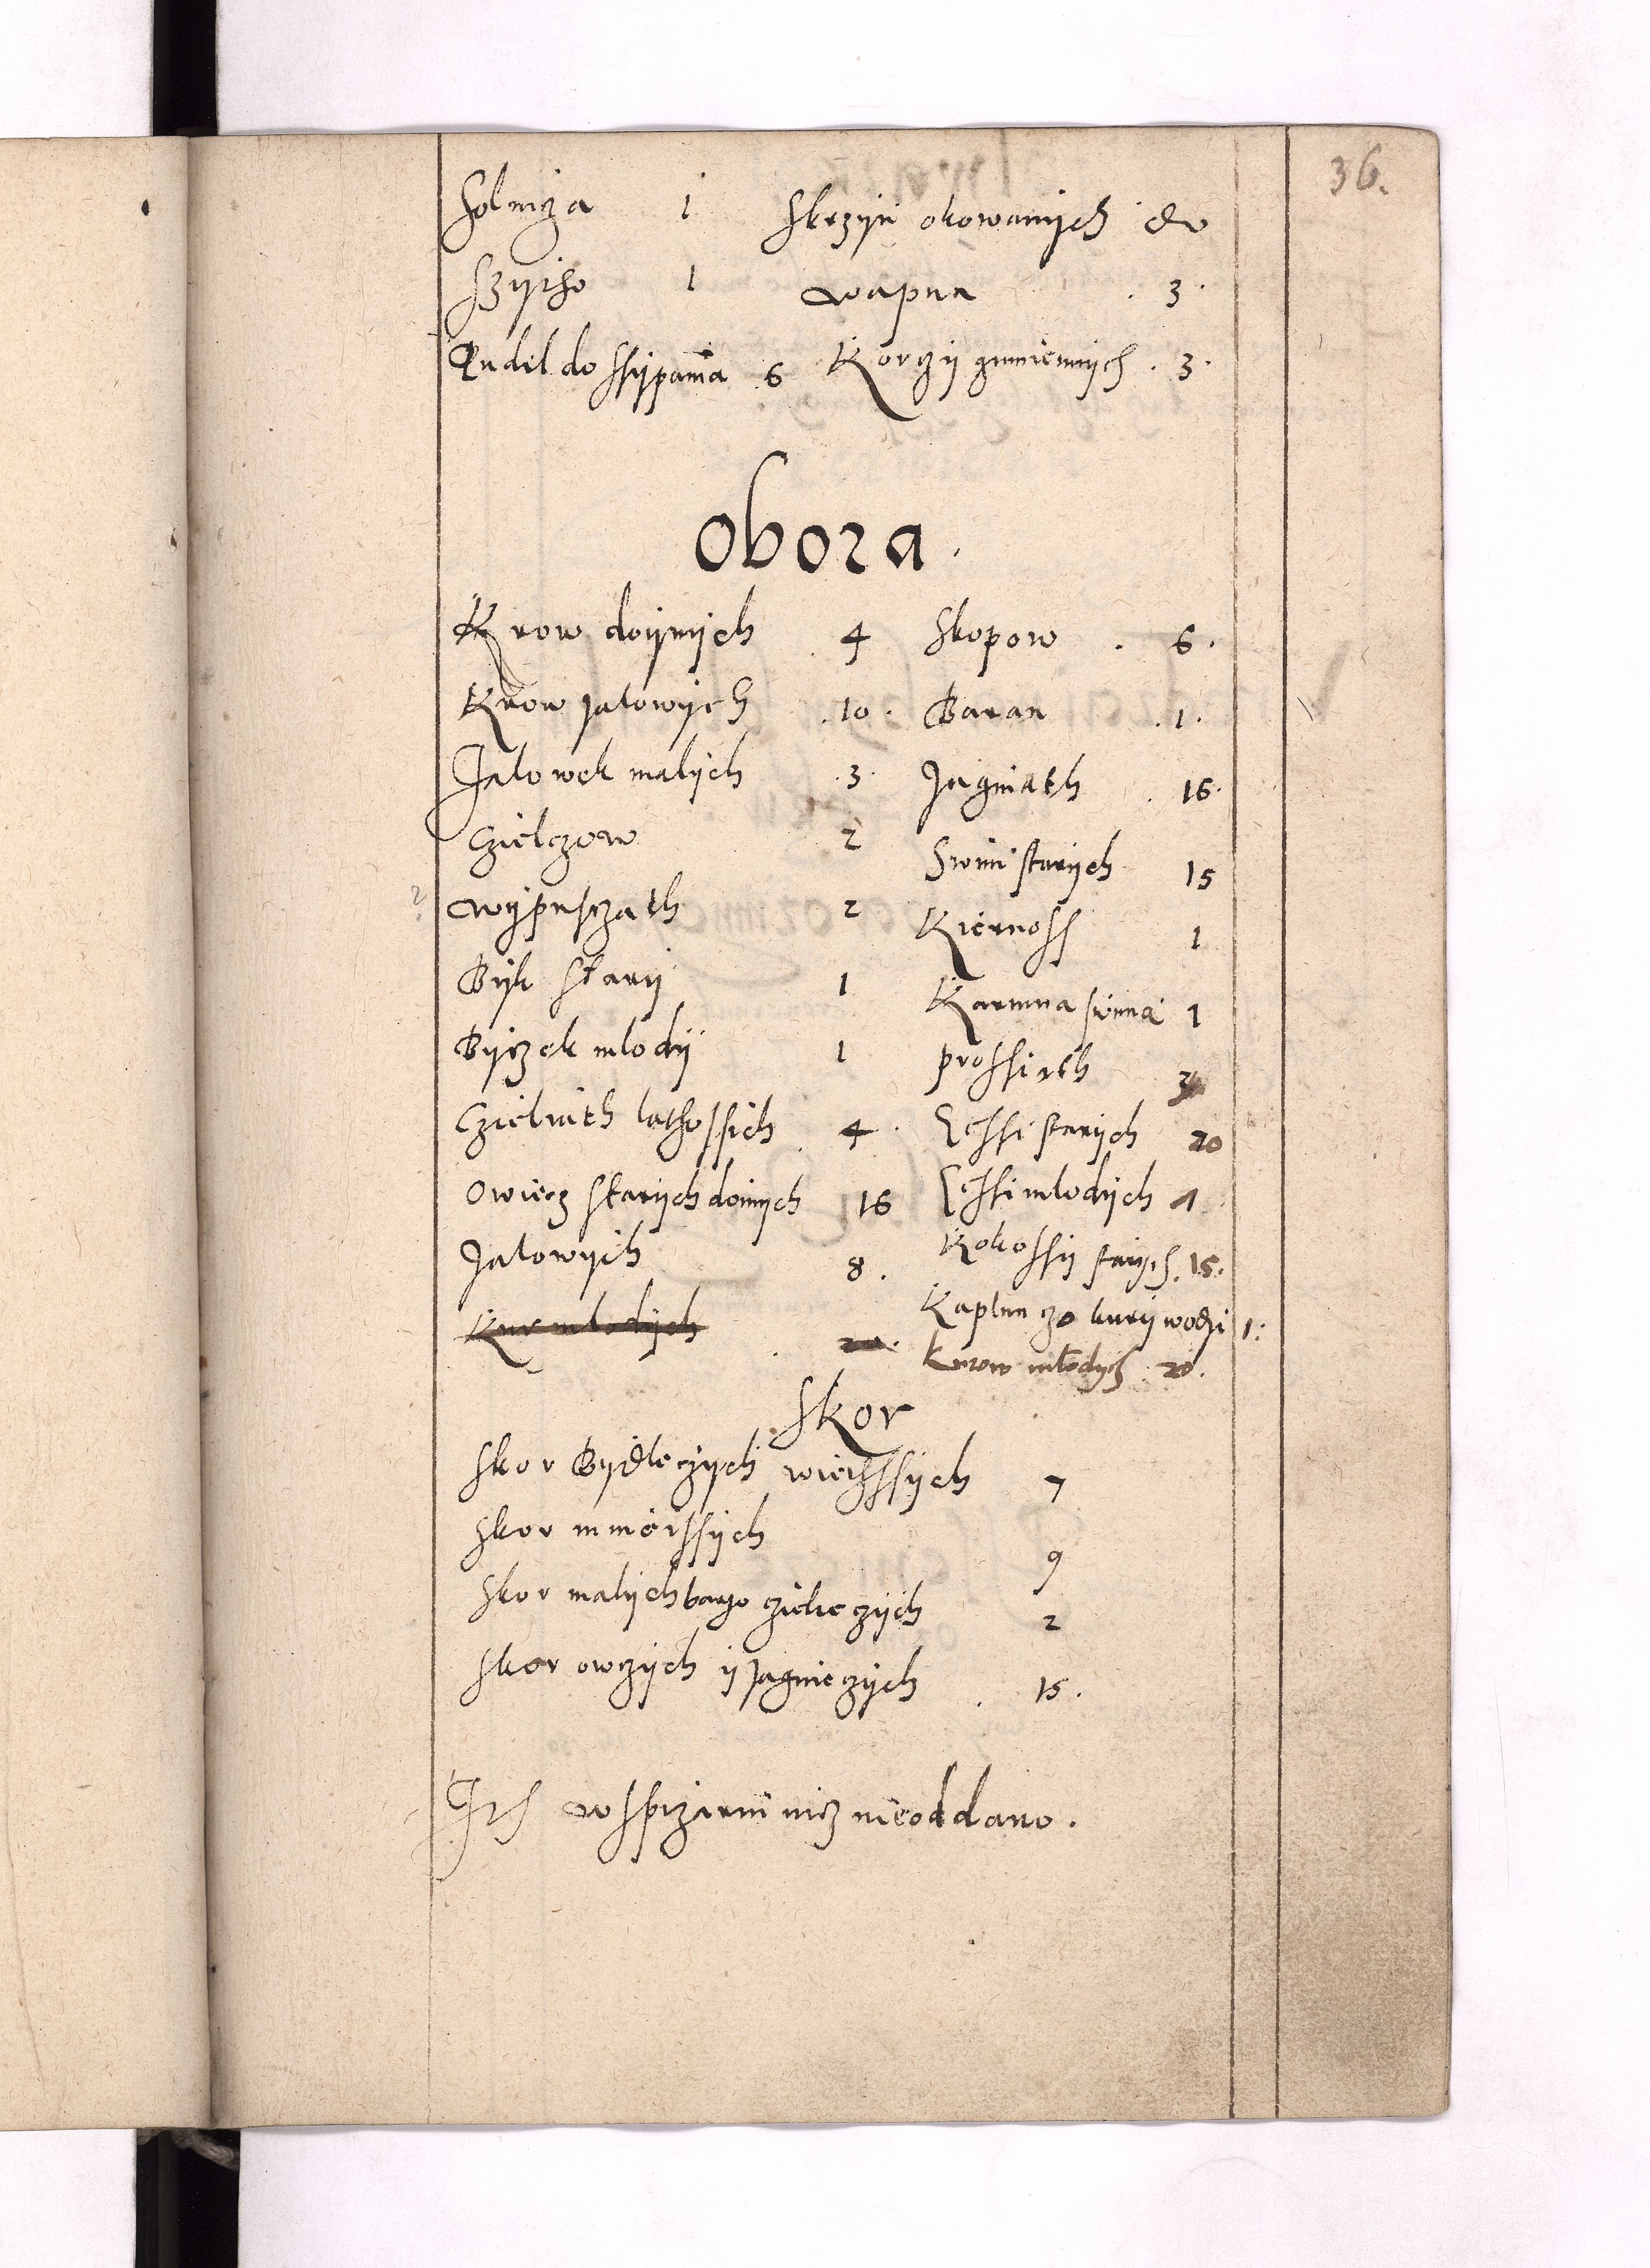 36.
Solnicza 1 Skrzyn okowanych do
Szytho 1 wapna . 3 .
Pudel do ssypania 6 Korczy gumiennych . 3 .
Obora .
Krow doynych . 4 Skopow . 6 .
Krow Jalowych . 10 . Baran . 1 .
Jalowek malych . 3 . Jagniath . 16 .
Czielczow 2 Swini starych 15
wypusczath 2 Kiernoss 1
Byk stary 1 Karmna swinia 1
Byczek mlody 1 prossiath
Czieliath lathossich . 4 . gessi starych 20
Owiecz starych doinych 16 gessi mlodych
Jalowych 8 . Kokossy starych . 15 .
Kur mlodych . 20 . Kaplun czo kury wodzi 1 :
kurow mlodych 20 .
Skor
Skor Bydleczych wiethssych 7
Skor mnierssych 9
Skor malych czieleczych 2
Skor owczych y Jagnieczych . 15 .
w spizarni nicz nie oddano .